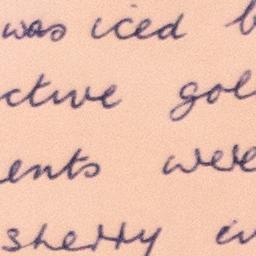 was iced b
ctive gol
ents were
sherry in